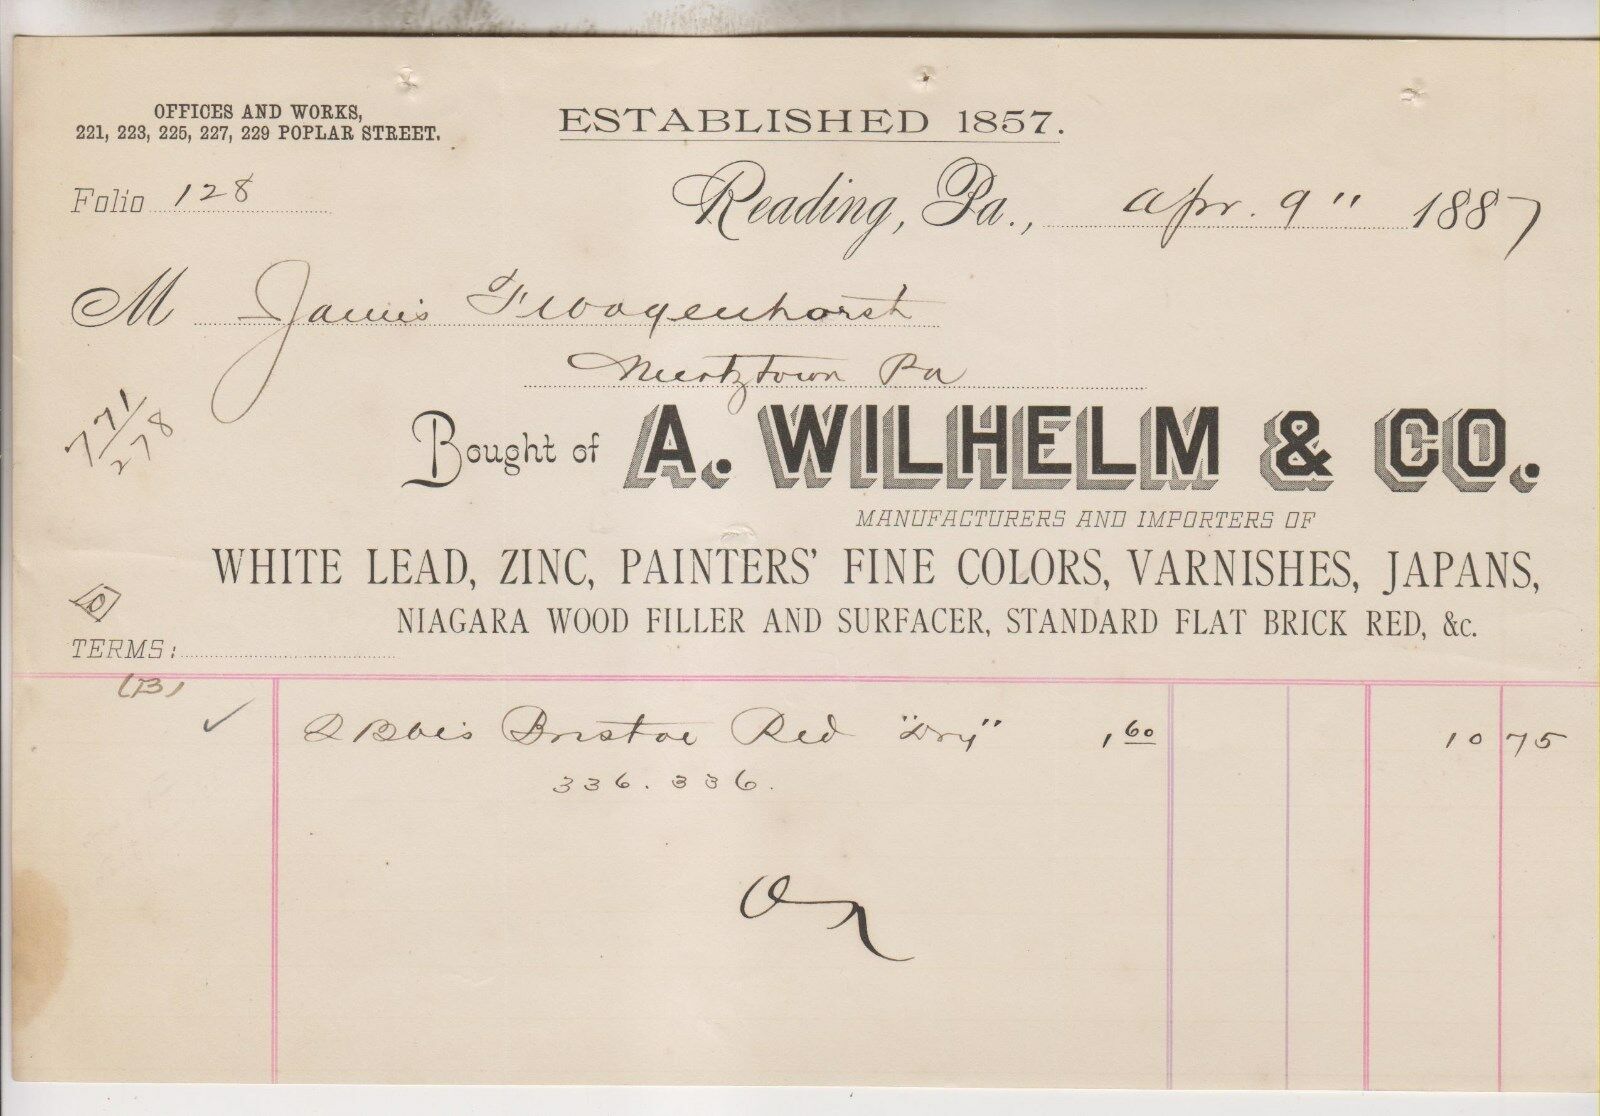 OFFICES AND WORKS,
221, 223, 225, 227, 229 POPLAR STREET.
ESTABLISHED 1857.
Folio 128
Reading, Pa., Apr. 9" 1887
M James F Woogenhorst
Mertztown Pa
771/278
Bought of A. WILHELM & CO.
MANUFACTURERS AND IMPORTERS OF
WHITE LEAD, ZINC, PAINTERS' FINE COLORS, VARNISHES, JAPANS,
NIAGARA WOOD FILLER AND SURFACER, STANDARD FLAT BRICK RED, &c.
TERMS:
(B)
2 Bbls Red "Dry" 1.60 10 75
336. 336.